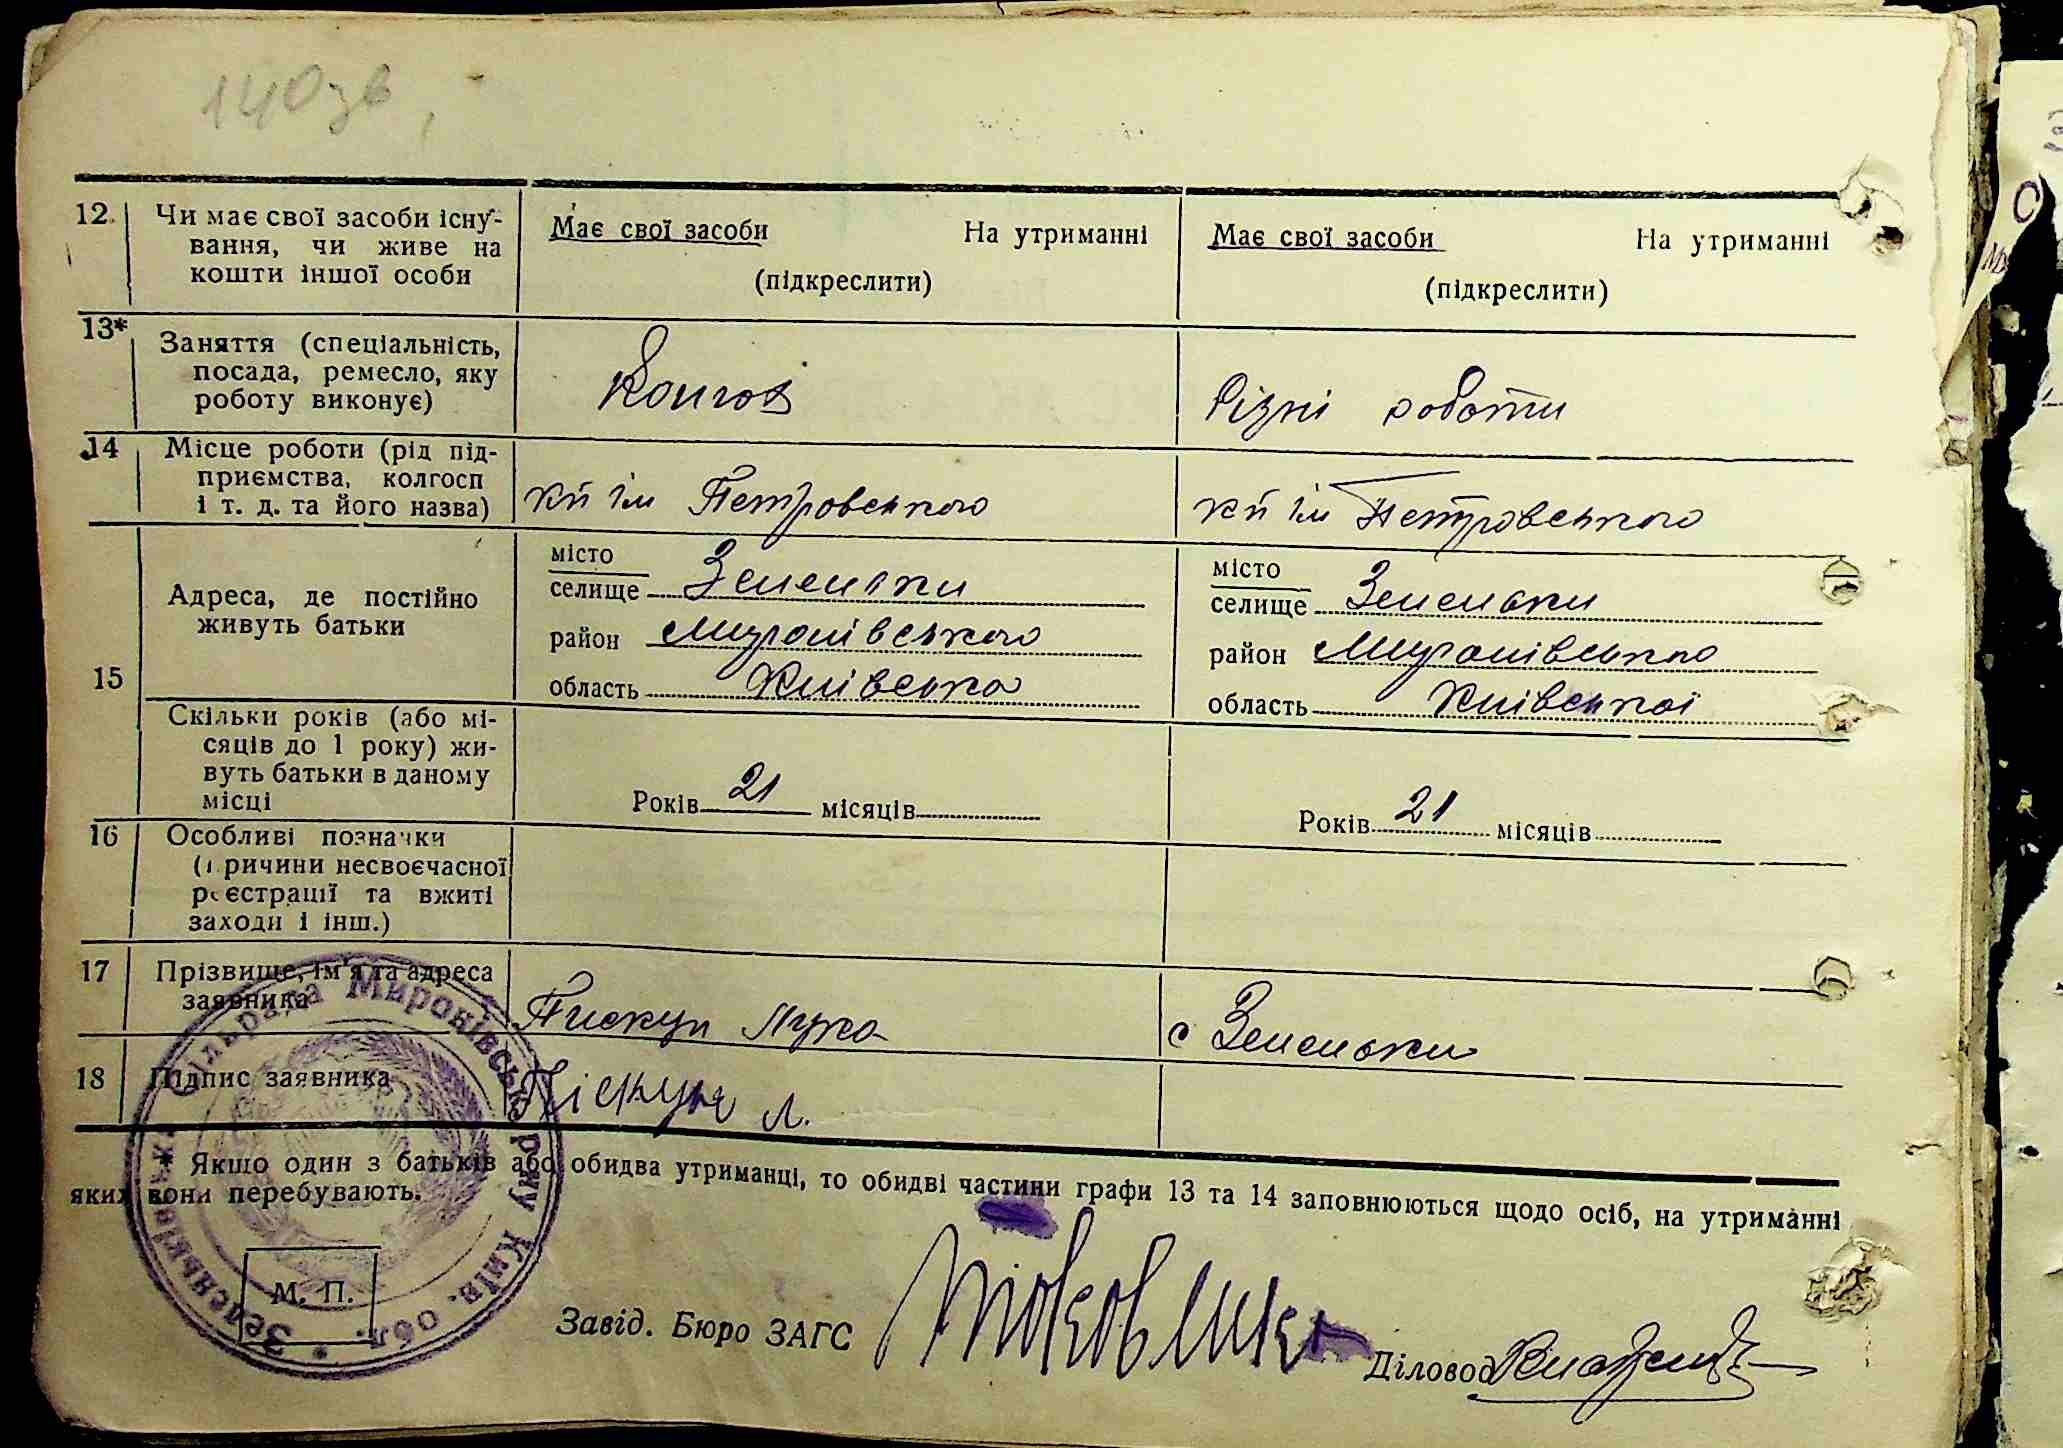 140зв
12. Чи має свої засоби існу-
вання, чи живе на
кошти іншої особи
Має свої засоби На утриманні
(підкреслити)
Має свої засоби На утриманні
(підкреслити)
13* Заняття (спеціальність,
посада, ремесло, яку
роботу виконує)
Різні роботи
14 Місце роботи (рід під-
приємства, колгосп
і т. д. та його назва)
кп ім Петровського
кп ім Петровського
15
Адреса, де постійно
живуть батьки
місто
селище Зеленьки
район Миронівського
область Київська
місто
селище Зеленьки
район Миронівського
область Київської
Скільки років (або мі-
сяців до 1 року) жи-
вуть батьки в даному
місці
Років 21 місяців
Років 21 місяців
16 Особливі позначки
(причини несвоєчасної
реєстрації та вжиті
заходи і інш.)
17 Прізвище, ім'я та адреса
заявника
Пискун Лука
с Зеленьки
18 Підпис заявника
Піскун Л.
* Якшо один з батьків або обидва утриманці, то обидві частини графи 13 та 14 заповнюються щодо осіб, на утриманні
яких вони перебувають.
Зеленьківська Сільрада Миронівського р-ну Київ. обл.
М. П.
Завід. Бюро ЗАГС
Діловод